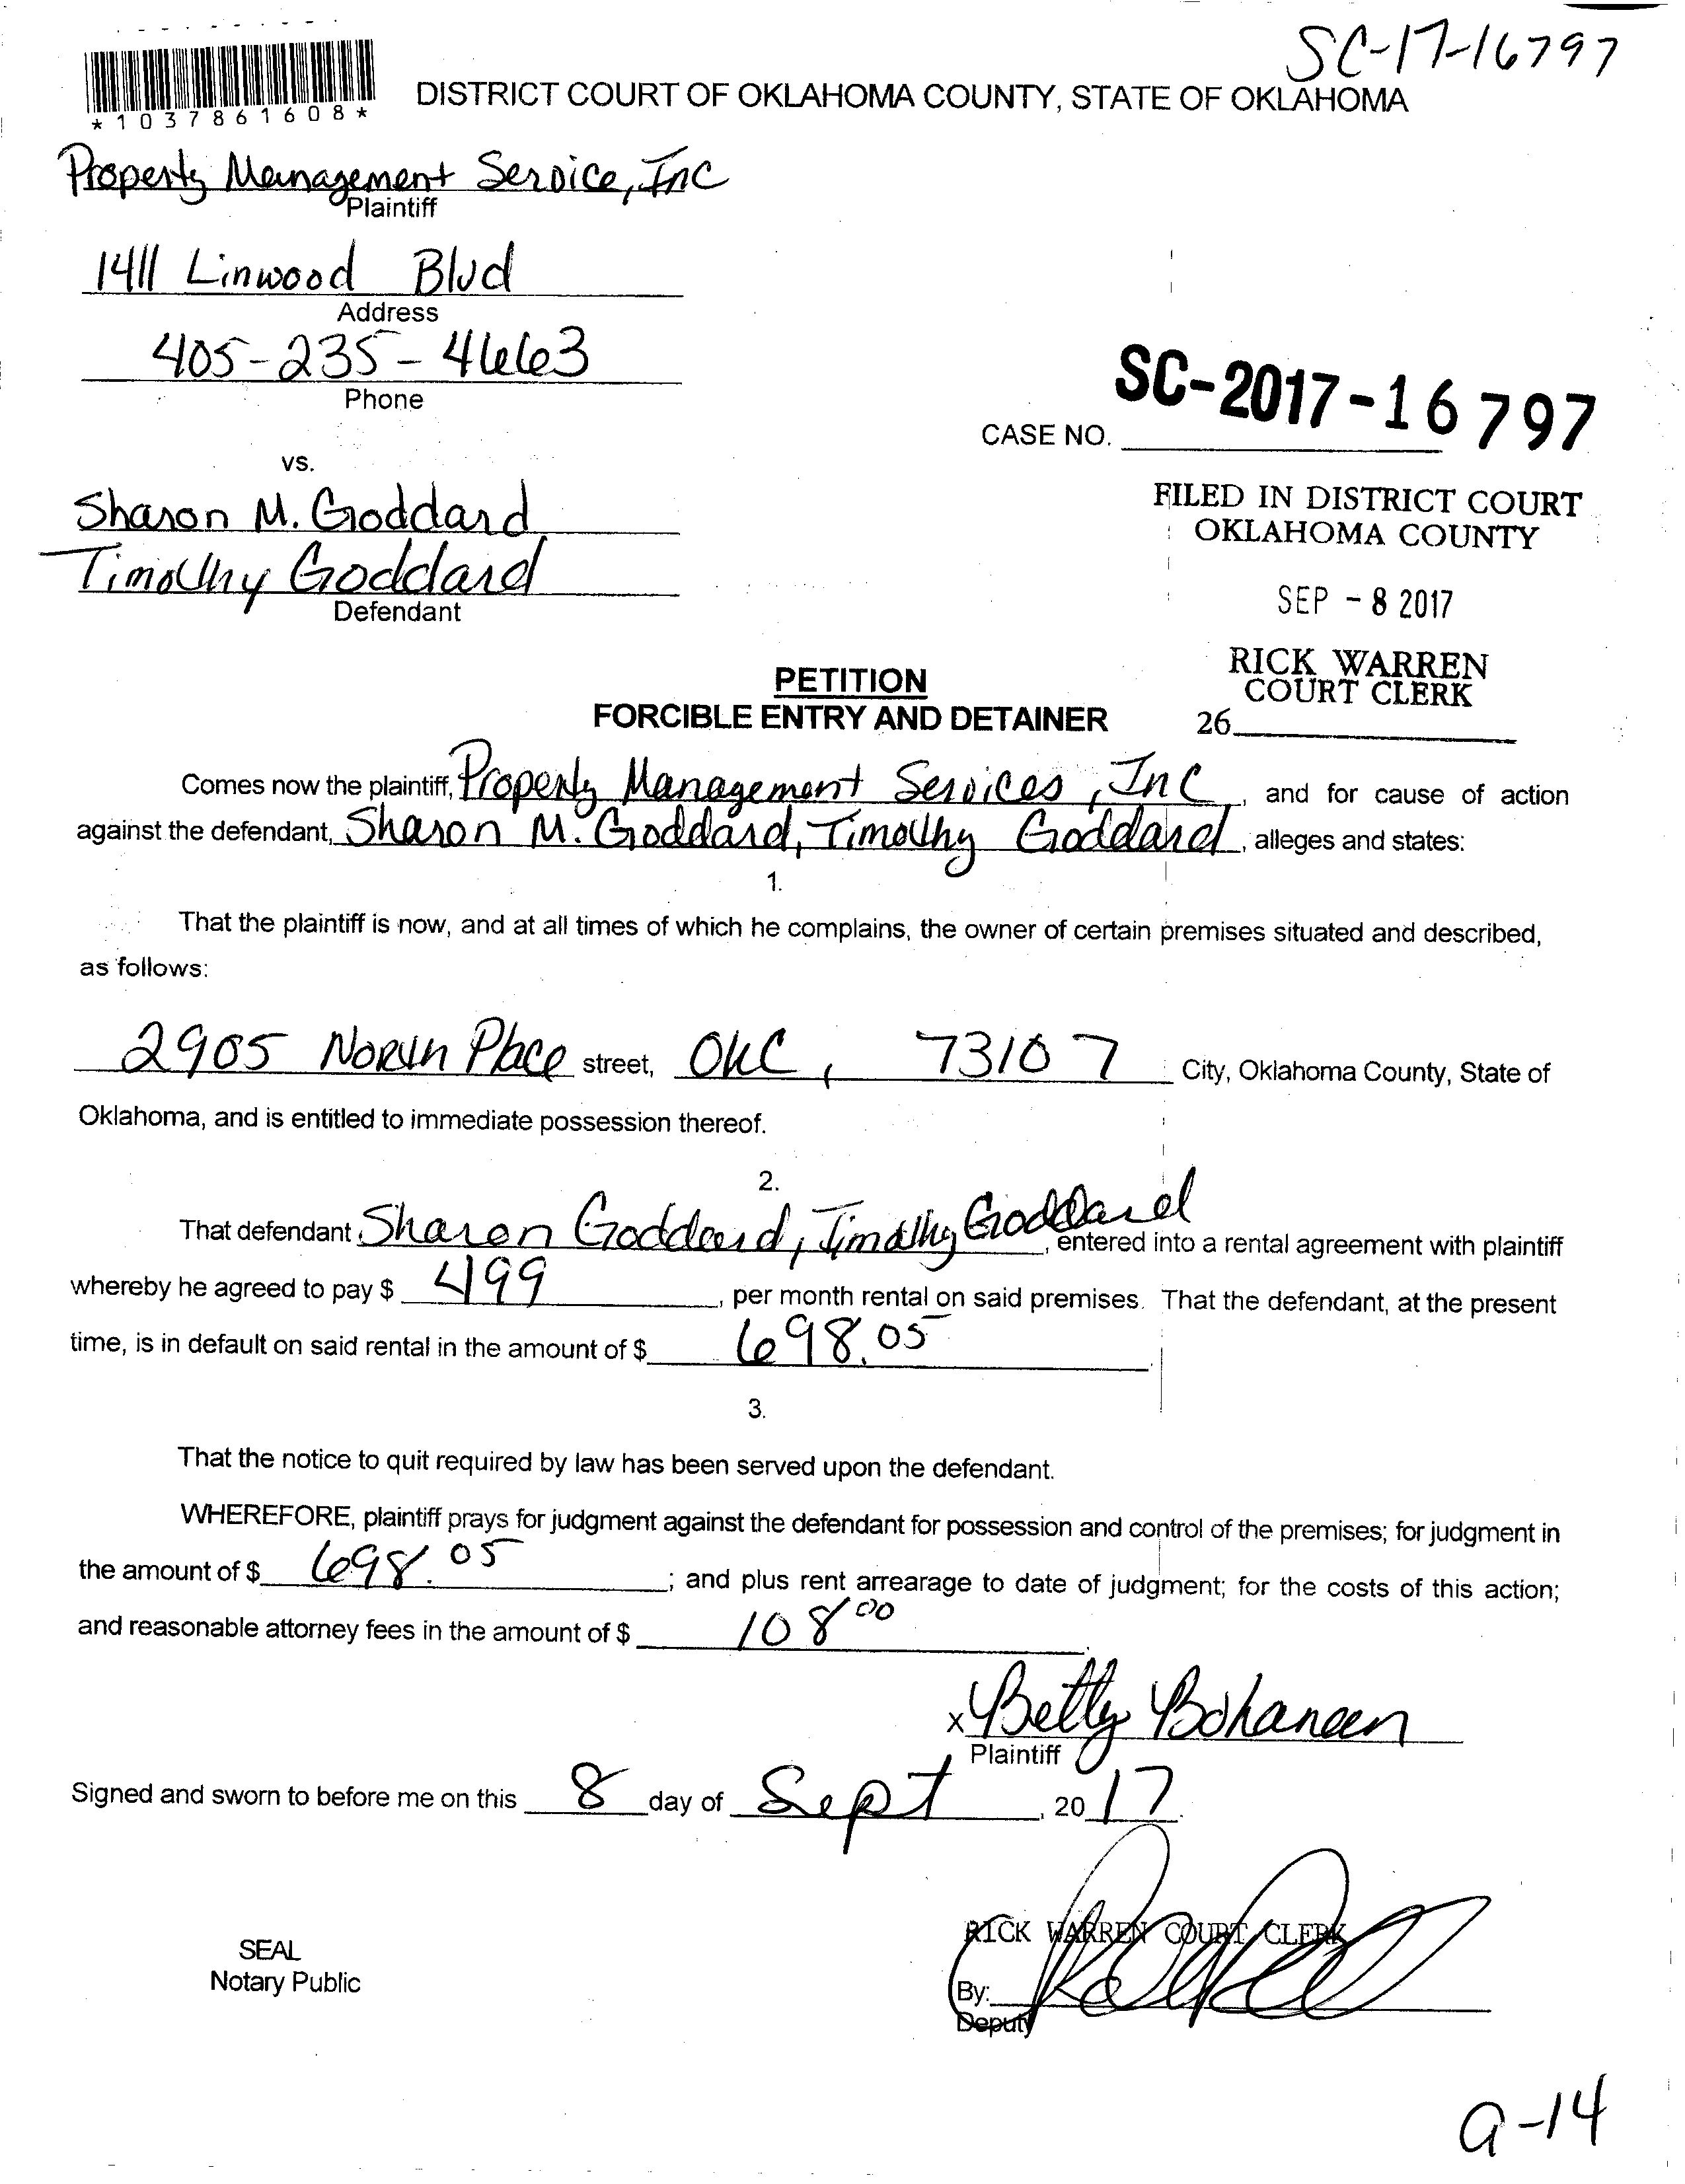 SC-17-16797
*1037861608*
DISTRICT COURT OF OKLAHOMA COUNTY, STATE OF OKLAHOMA
Property Management Service, Inc
Plaintiff
1411 Linwood Blvd
Address
405-235-4663
Phone
SC-2017-16797
CASE NO.
vs.
Sharon M. Goddard
Timothy Goddard
Defendant
FILED IN DISTRICT COURT
OKLAHOMA COUNTY
SEP - 8 2017
RICK WARREN
COURT CLERK
26
PETITION
FORCIBLE ENTRY AND DETAINER
Comes now the plaintiff, Property Management Services, Inc, and for cause of action
against the defendant, Sharon M. Goddard, Timothy Goddard, alleges and states:
1.
That the plaintiff is now, and at all times of which he complains, the owner of certain premises situated and described,
as follows:
2905 North Place street, OKC, 73107 City, Oklahoma County, State of
Oklahoma, and is entitled to immediate possession thereof.
2.
That defendant, Sharon Goddard, Timothy Goddard, entered into a rental agreement with plaintiff
whereby he agreed to pay $ 499, per month rental on said premises. That the defendant, at the present
time, is in default on said rental in the amount of $ 698.05.
3.
That the notice to quit required by law has been served upon the defendant.
WHEREFORE, plaintiff prays for judgment against the defendant for possession and control of the premises; for judgment in
the amount of $ 698.05; and plus rent arrearage to date of judgment; for the costs of this action;
and reasonable attorney fees in the amount of $ 108 00.
x Betty Bohanon
Plaintiff
Signed and sworn to before me on this 8 day of Sept, 2017.
RICK WARREN COURT CLERK
SEAL
Notary Public
By:
Deputy
a-14